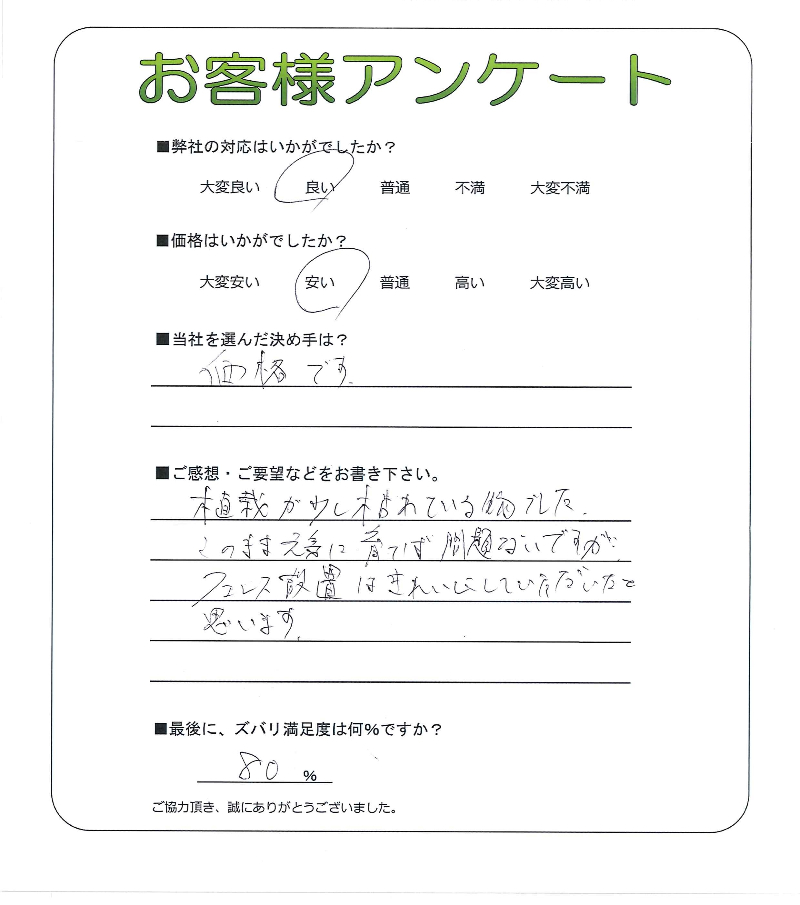 お客様アンケート
■弊社の対応はいかがでしたか？
大変良い 良い 普通 不満 大変不満
■価格はいかがでしたか？
大変安い 安い 普通 高い 大変高い
■当社を選んだ決め手は？
価格です。
■ご感想・ご要望などをお書き下さい。
植栽が少し枯れている物でした。
このまま元気に育てば問題ないですが、
フェンス設置はきれいにしていただいたと
思います。
■最後に、ズバリ満足度は何%ですか？
80 %
ご協力頂き、誠にありがとうございました。